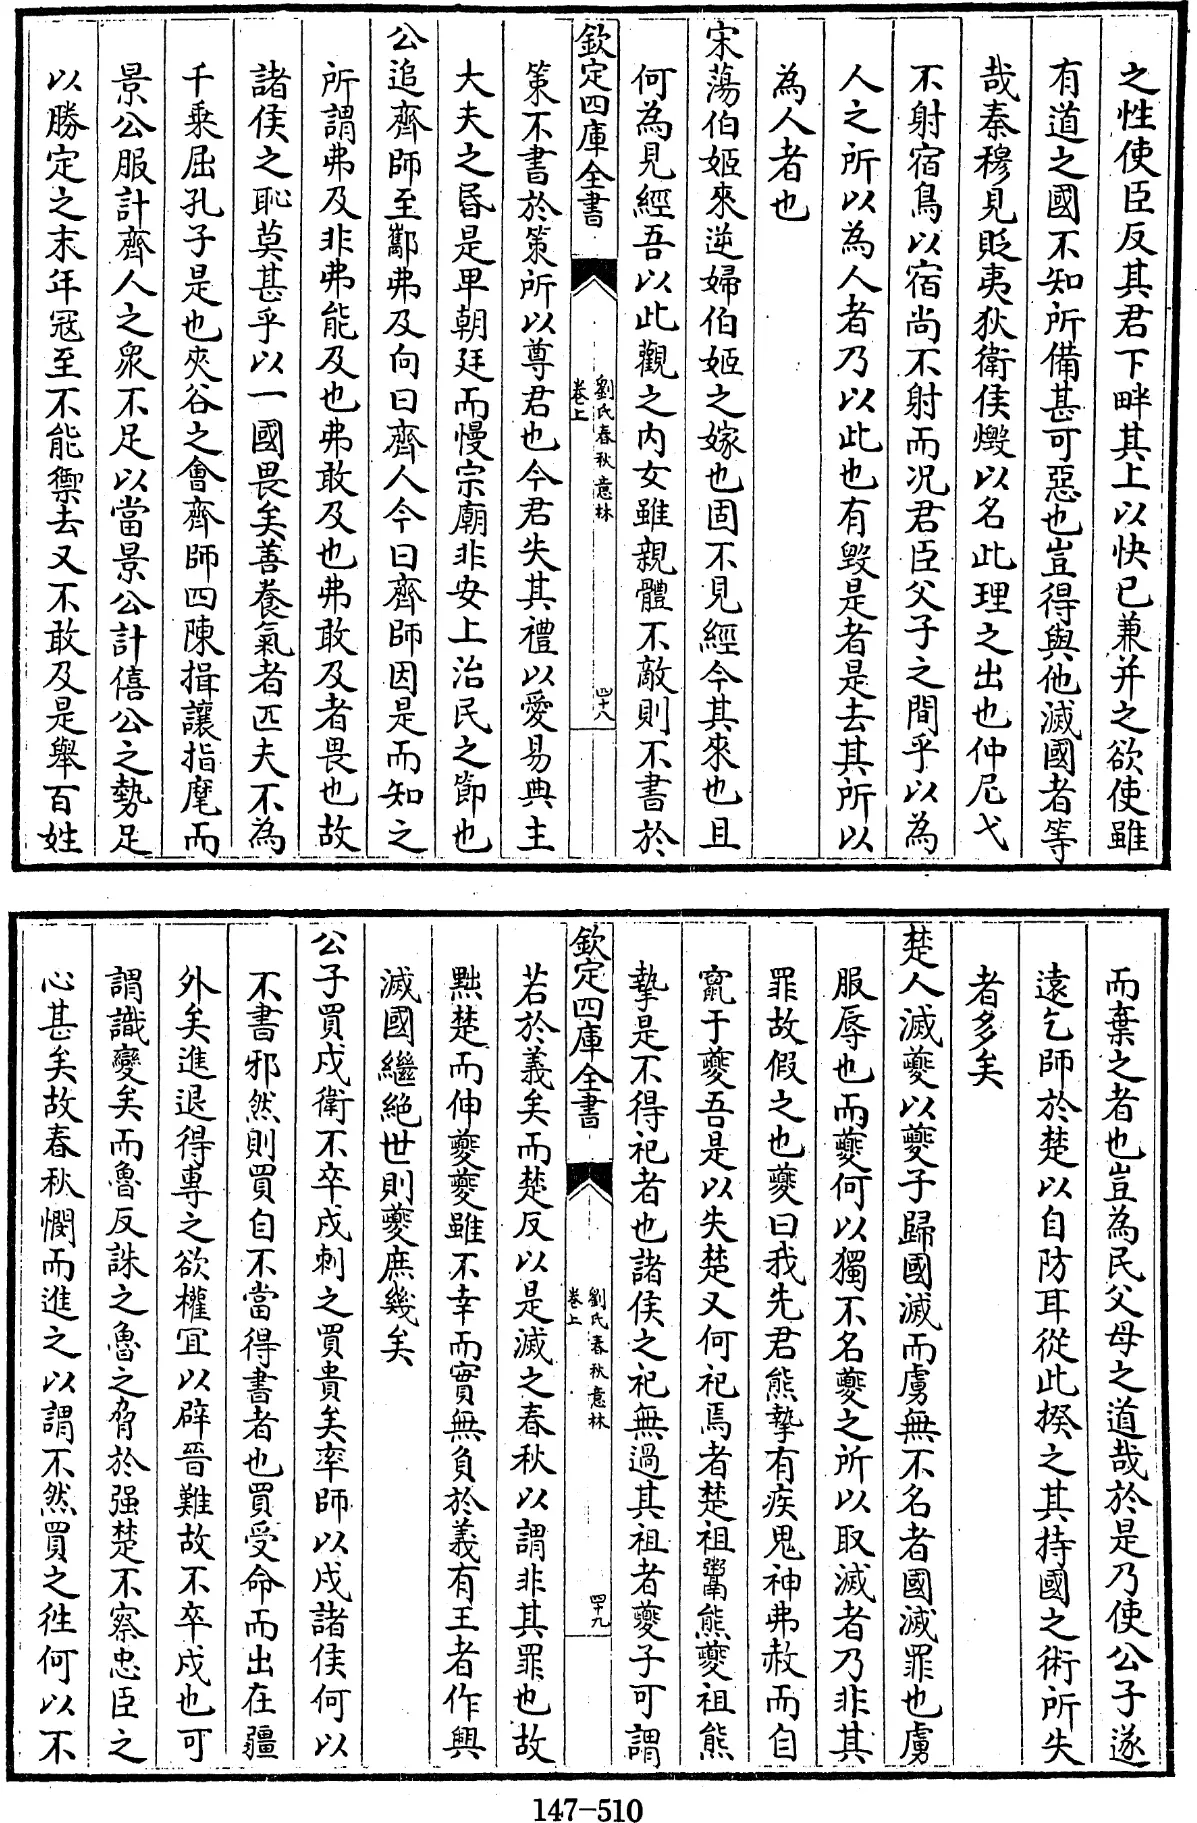 之性使臣反其君下畔其上以快已兼并之欲使雖
有道之國不知所備甚可惡也豈得與他滅國者等
哉秦穆見貶夷狄衛侯燬以名此理之出也仲尼弋
不射宿鳥以宿尚不射而况君臣父子之間乎以為
人之所以為人者乃以此也有毀是者是去其所以
為人者也
宋蕩伯姬來逆婦伯姬之嫁也固不見經今其來也且
何為見經吾以此觀之内女雖親體不敵則不書於
欽定四庫全書
劉氏春秋意林
卷上
四十八
策不書於策所以尊君也今君失其禮以愛易典主
大夫之昏是卑朝廷而慢宗廟非安上治民之節也
公追齊師至酅弗及向曰齊人今曰齊師因是而知之
所謂弗及非弗能及也弗敢及也弗敢及者畏也故
諸侯之恥莫甚乎以一國畏矣善養氣者匹夫不為
千乗屈孔子是也夾谷之會齊師四陳揖讓指麾而
景公服計齊人之衆不足以當景公計僖公之勢足
以勝定之末年冦至不能禦去又不敢及是舉百姓
而棄之者也豈為民父母之道哉於是乃使公子遂
遠乞師於楚以自防耳從此揆之其持國之術所失
者多矣
楚人滅夔以夔子歸國滅而虜無不名者國滅罪也虜
服辱也而夔何以獨不名夔之所以取滅者乃非其
罪故假之也夔曰我先君熊摯有疾鬼神弗赦而自
竄于夔吾是以失楚又何祀焉者楚祖鬻熊夔祖熊
摯是不得祀者也諸侯之祀無過其祖者夔子可謂
欽定四庫全書
劉氏春秋意林
卷上
四十九
若於義矣而楚反以是滅之春秋以謂非其罪也故
黜楚而伸夔夔雖不幸而實無負於義有王者作興
滅國繼絶世則夔庶幾矣
公子買戍衛不卒戍刺之買貴矣率師以戍諸侯何以
不書邪然則買自不當得書者也買受命而出在疆
外矣進退得專之欲權冝以辟晉難故不卒戍也可
謂識變矣而魯反誅之魯之脅於强楚不察忠臣之
心甚矣故春秋憫而進之以謂不然買之徃何以不
147-510